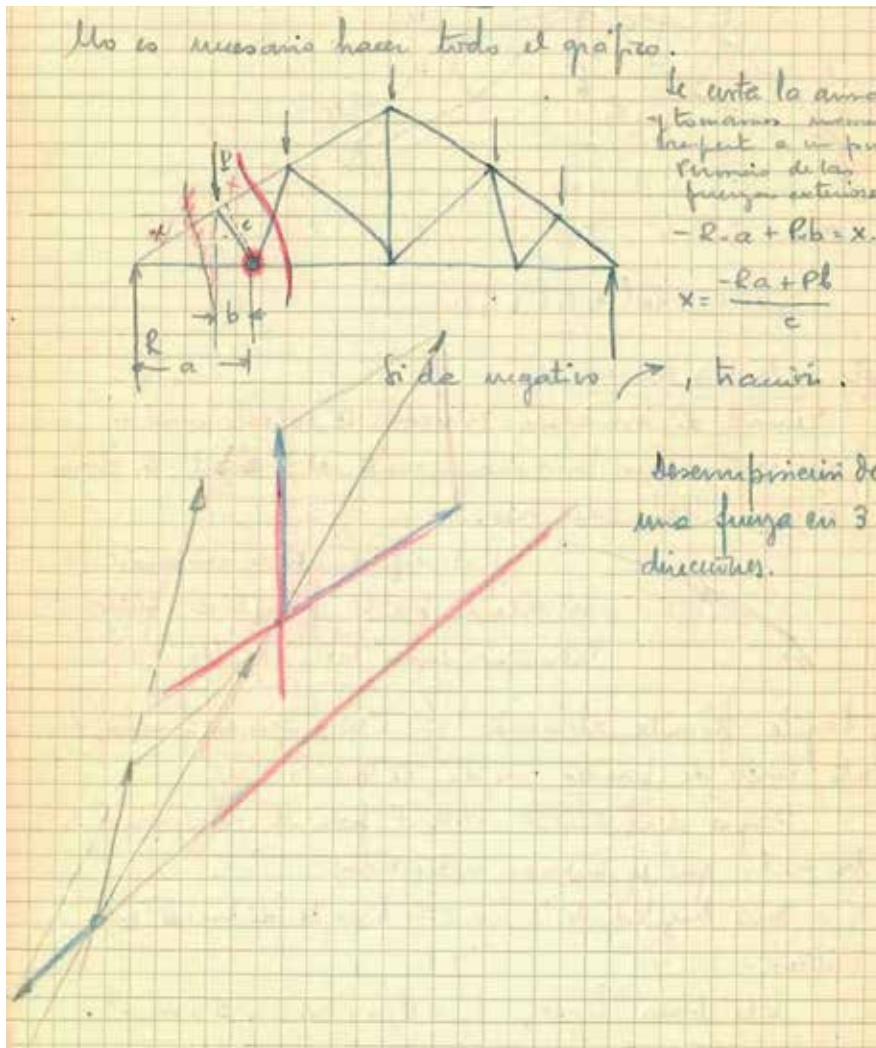 No es necesario hacer todo el gráfico.
Se corta la arma
y tomamos mome
respect a un pu
de las
fuerzas exteriore
- R.a + P.b = x.
x = -Ra + Pb
c
P
x
x
c
b
R
a
Si da negativo , tracción.
Descomposición de
una fuerza en 3
direcciones.